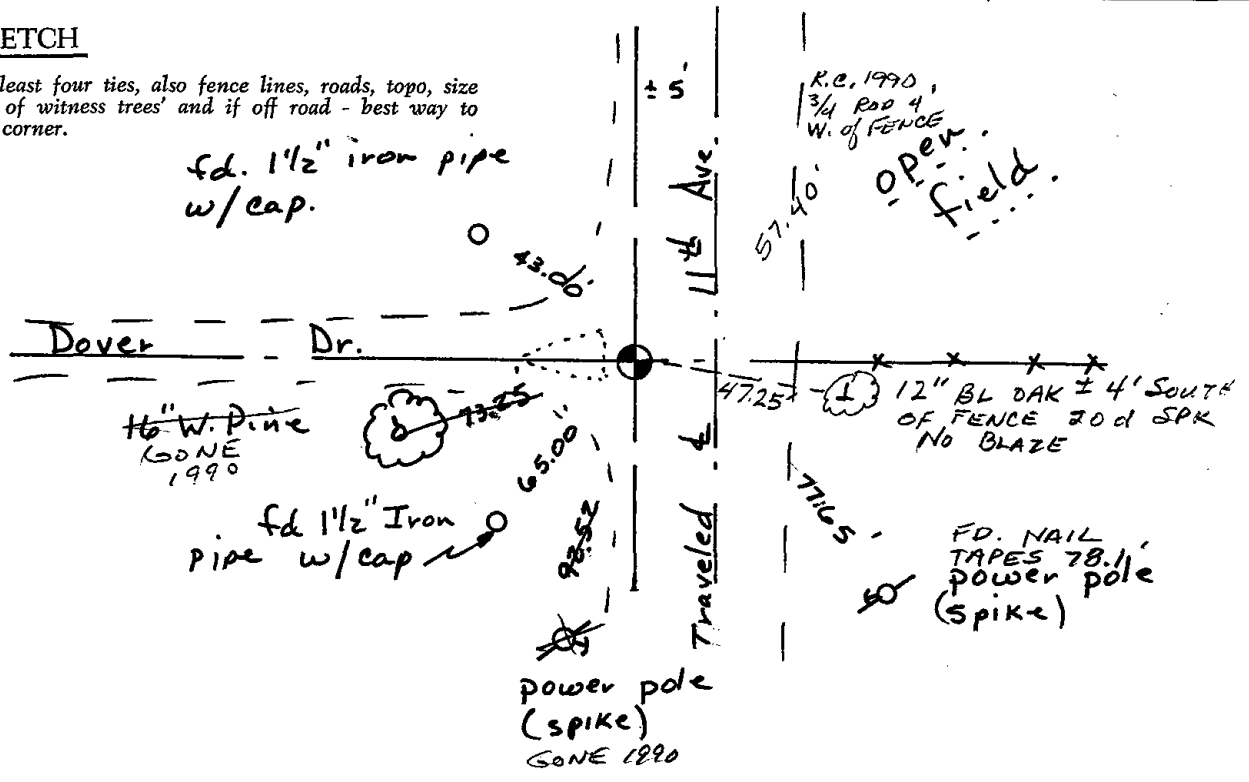 ETCH
least four ties, also fence lines, roads, topo, size
of witness trees' and if off road - best way to
corner.
± 5'
R.C. 1990
W. of FENCE
open
field
fd. 1 1/2" iron pipe
w/cap.
43.00'
11th Ave.
57.40'
Dover Dr.
16" W. Pine
GONE
1990
73.25
47.25
1
12" BL OAK ± 4' SOUTH
OF FENCE 20d SPK
NO BLAZE
65.00'
fd 1 1/2" Iron
pipe w/cap
92.52
Traveled
77.65'
FD. NAIL
TAPES 78.1'
power pole
(spike)
power pole
(spike)
GONE 1990